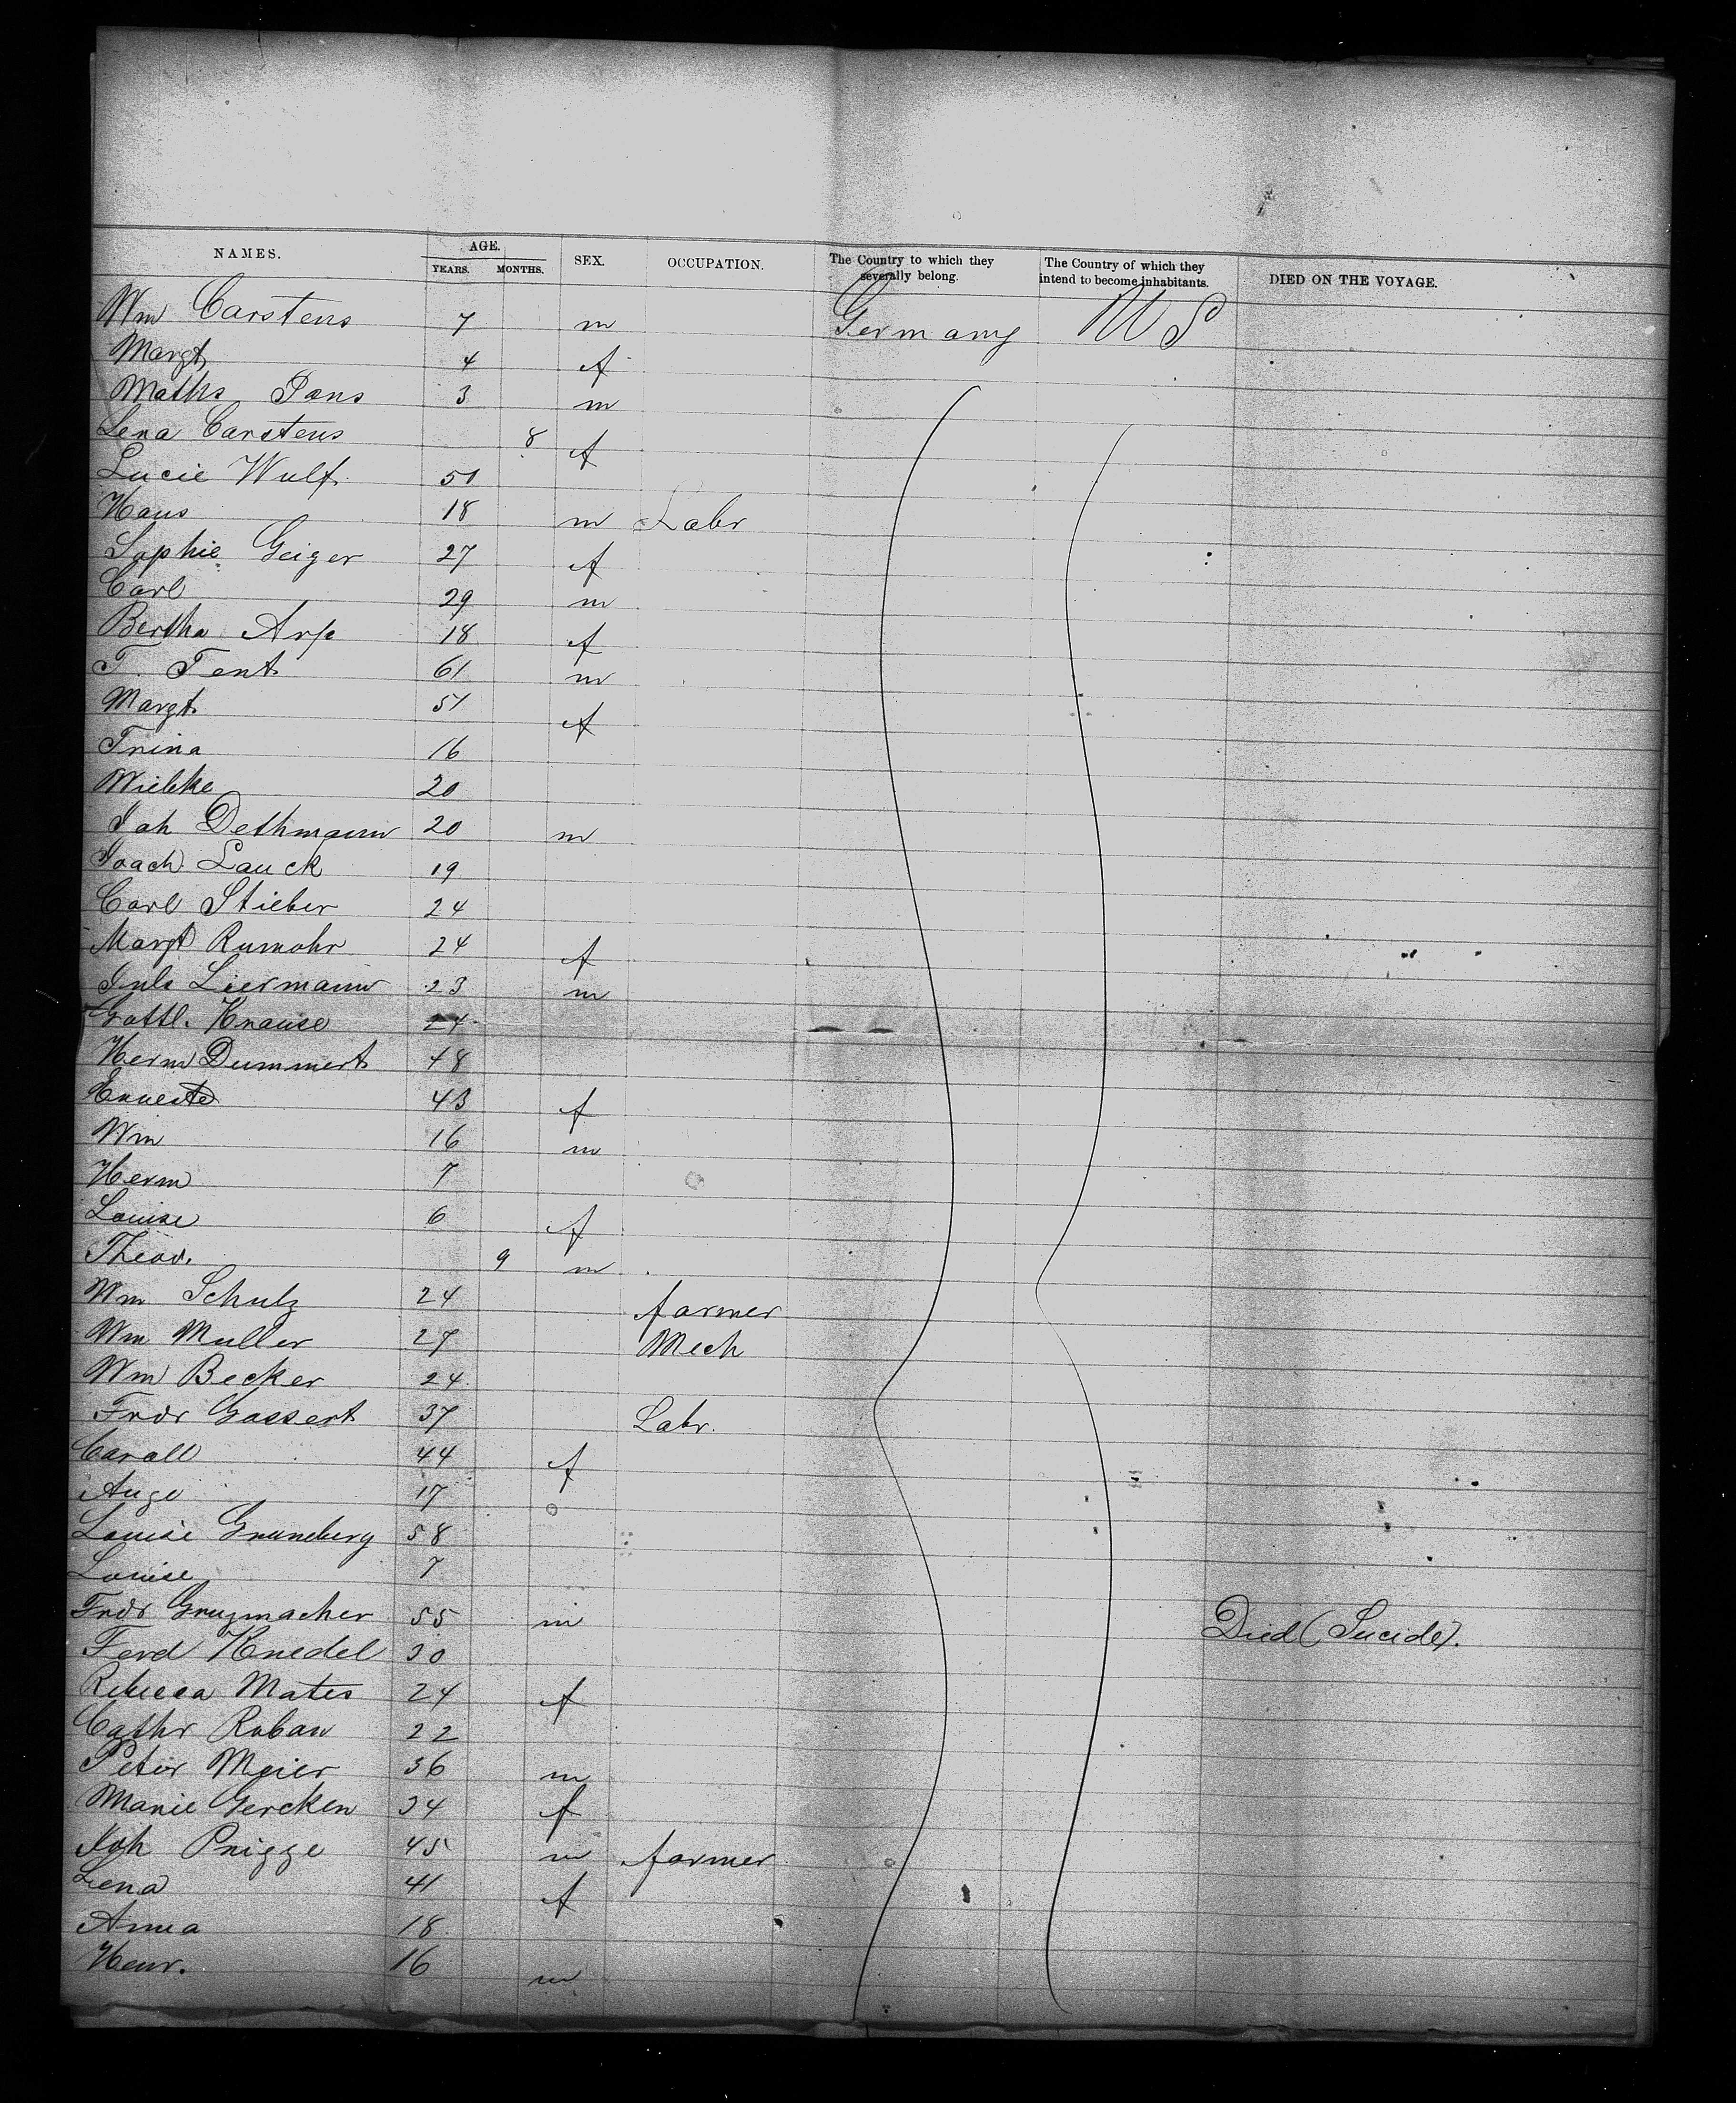 NAMES. AGE. YEARS. MONTHS. SEX. OCCUPATION. The Country to which they severally belong. The Country of which they intend to become inhabitants. DIED ON THE VOYAGE.
Wm Carstens 7 m Germany U S
Margt 4 f
Maths Pans 3 m
Lena Carstens 8 f
Lucie Wulf 51
Hans 18 m Labr
Sophie Geiger 27 f
Carl 29 m
Bertha Arp 18 f
T. Tent 61 m
Margt. 51 f
Trina 16
Wiebke 20
Joh Dethmann 20 m
Joach Lauck 19
Carl Stieber 24
Margt Rumohr 24 f
Juls Liermann 23 m
Gottl. Krause 24
Herm Dummert 48
Erneste 43 f
Wm 16 m
Herm 7
Louise 6 f
Theod. 9 m
Wm Schulz 24 farmer
Wm Muller 27 Mech
Wm Becker 24
Fridr Gossert 37 Labr.
Caroll 44 f
Auge 17
Louise Gruneberg 58
Louise 7
Fridr Gruzmacher 55 m Died (Suicide).
Ferd Knedel 30
Rebecca Mates 24 f
Cathr Roban 22
Peter Meier 36 m
Marie Gercken 34 f
Joh Prigge 45 m farmer
Lena 41 f
Anna 18
Henr. 16 m